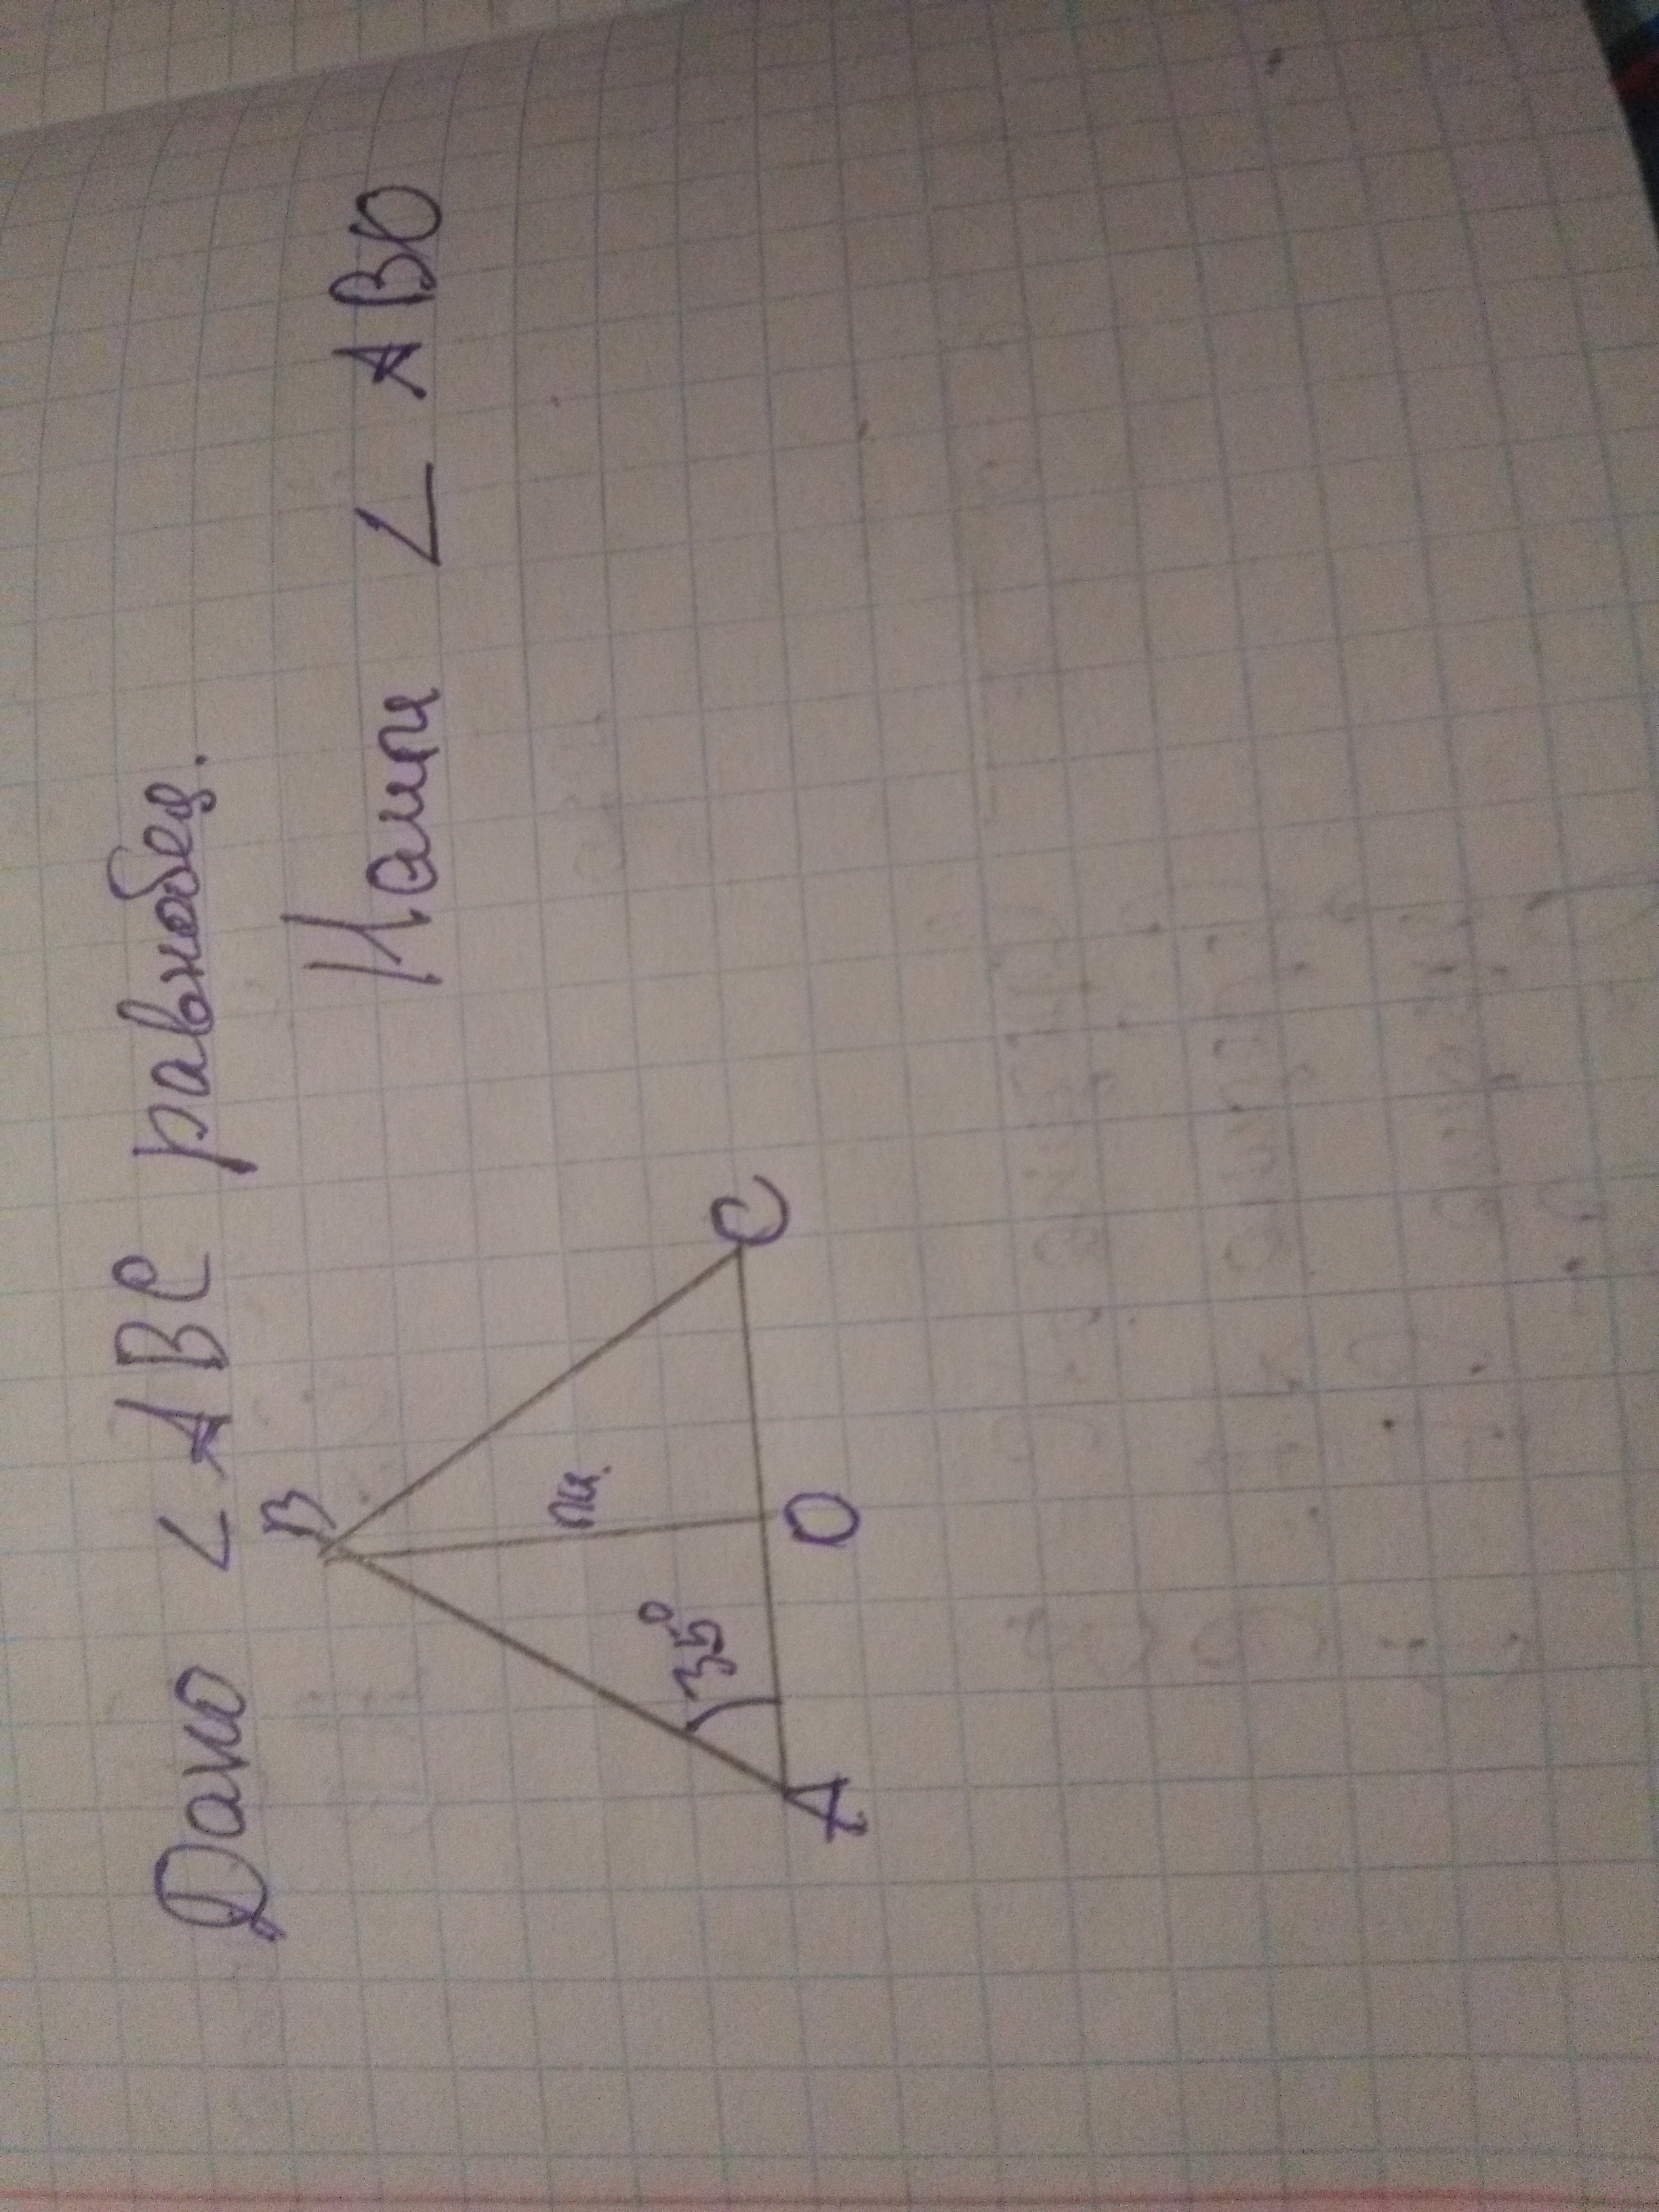 Дано ∠ ABC равнобед.
Найти ∠ ABO
B
м.
35°
A
O
C